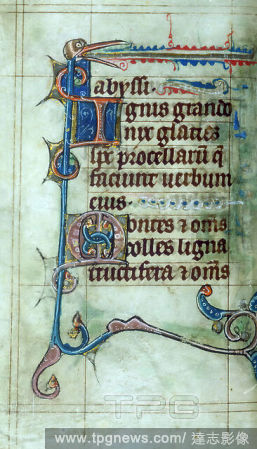 abyssi.
Ignis grando
nix glacies
sp̄s procellarū q̄
faciunt uerbum
eius.
Montes ⁊ om̄s
colles ligna
fructifera ⁊ om̄s
TPG
www.tpgnews.com/ 達志影像